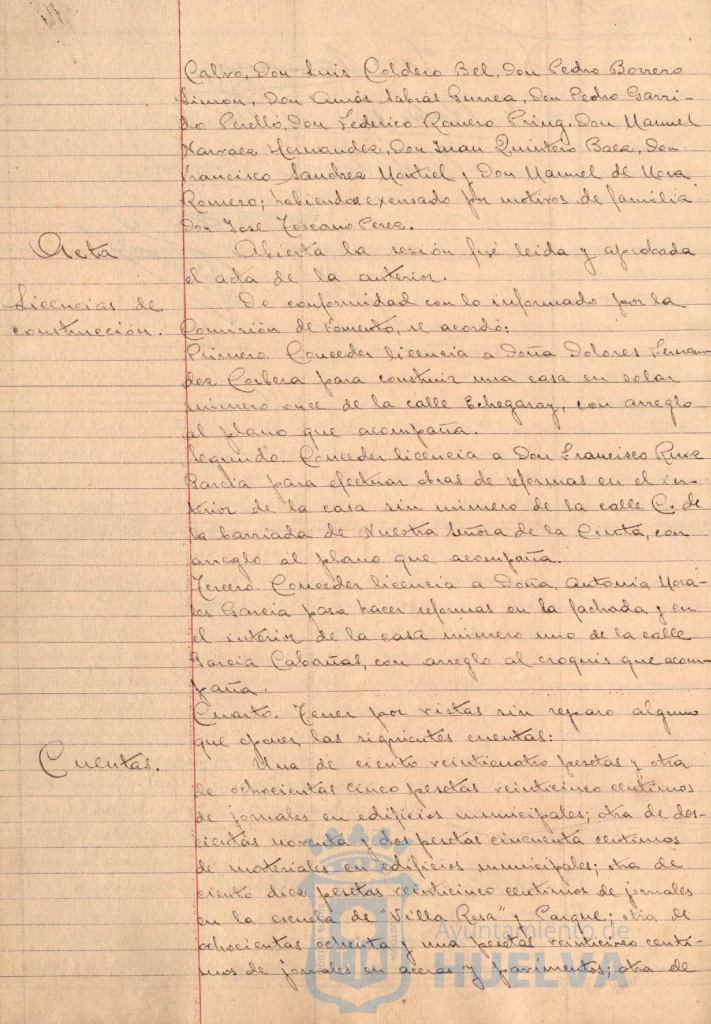 Calvo, Don Luis Coldero Bel, Don Pedro Borrero
Simon, Don Amós Sabrás Gurrea, Don Pedro Garri-
do Perelló, Don Federico Romero Pring, Don Manuel
Narvaez Hernandez, Don Juan Quintero Baez, Don
Francisco Sanchez Montiel y Don Manuel de Mora
Romero; habiendose excusado por motivos de familia
Don José Toscano Perez.
Acta
Abierta la sesión fué leida y aprobada
el acta de la anterior.
Licencias de
construcción.
De conformidad con lo informado por la
Comisión de Fomento, se acordó:
Primero. Conceder licencia a Doña Dolores Fernan-
dez Corbera para construir una casa en solar
número once de la calle Echegaray, con arreglo
al plano que acompaña.
Segundo. Conceder licencia a Don Francisco Ruiz
Garcia para efectuar obras de reformas en el in-
terior de la casa sin número de la calle C. de
la barriada de Nuestra Señora de la Cinta, con
arreglo al plano que acompaña.
Tercero. Conceder licencia a Doña Antonia Mora-
les Garcia para hacer reformas en la fachada y en
el interior de la casa número uno de la calle
Garcia Cabañas, con arreglo al croquis que acom-
paña.
Cuarto. Tener por vistas sin reparo alguno
que oponer, las siguientes cuentas:
Cuentas.
Una de ciento veinticuatro pesetas y otra
de ochocientas cinco pesetas veinticinco centimos
de jornales en edificios municipales; otra de dos-
cientas noventa y dos pesetas cincuenta centimos
de materiales en edificios municipales; otra de
ciento diez pesetas veinticinco centimos de jornales
en la escuela de "Villa Rosa" y Parque; otra de
ochocientas ochenta y una pesetas veinticinco centi-
mos de jornales en aceras y pavimentos; otra de
Ayuntamiento de
HUELVA